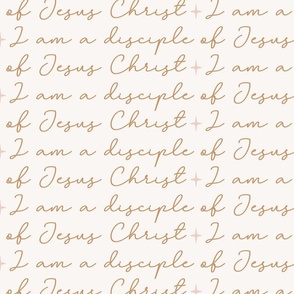 of Jesus Christ I am a
I am a disciple of Jesus
of Jesus Christ I am a
I am a disciple of Jesus
of Jesus Christ I am a
I am a disciple of Jesus
of Jesus Christ I am a
I am a disciple of Jesus
of Jesus Christ I am a
I am a disciple of Jesus